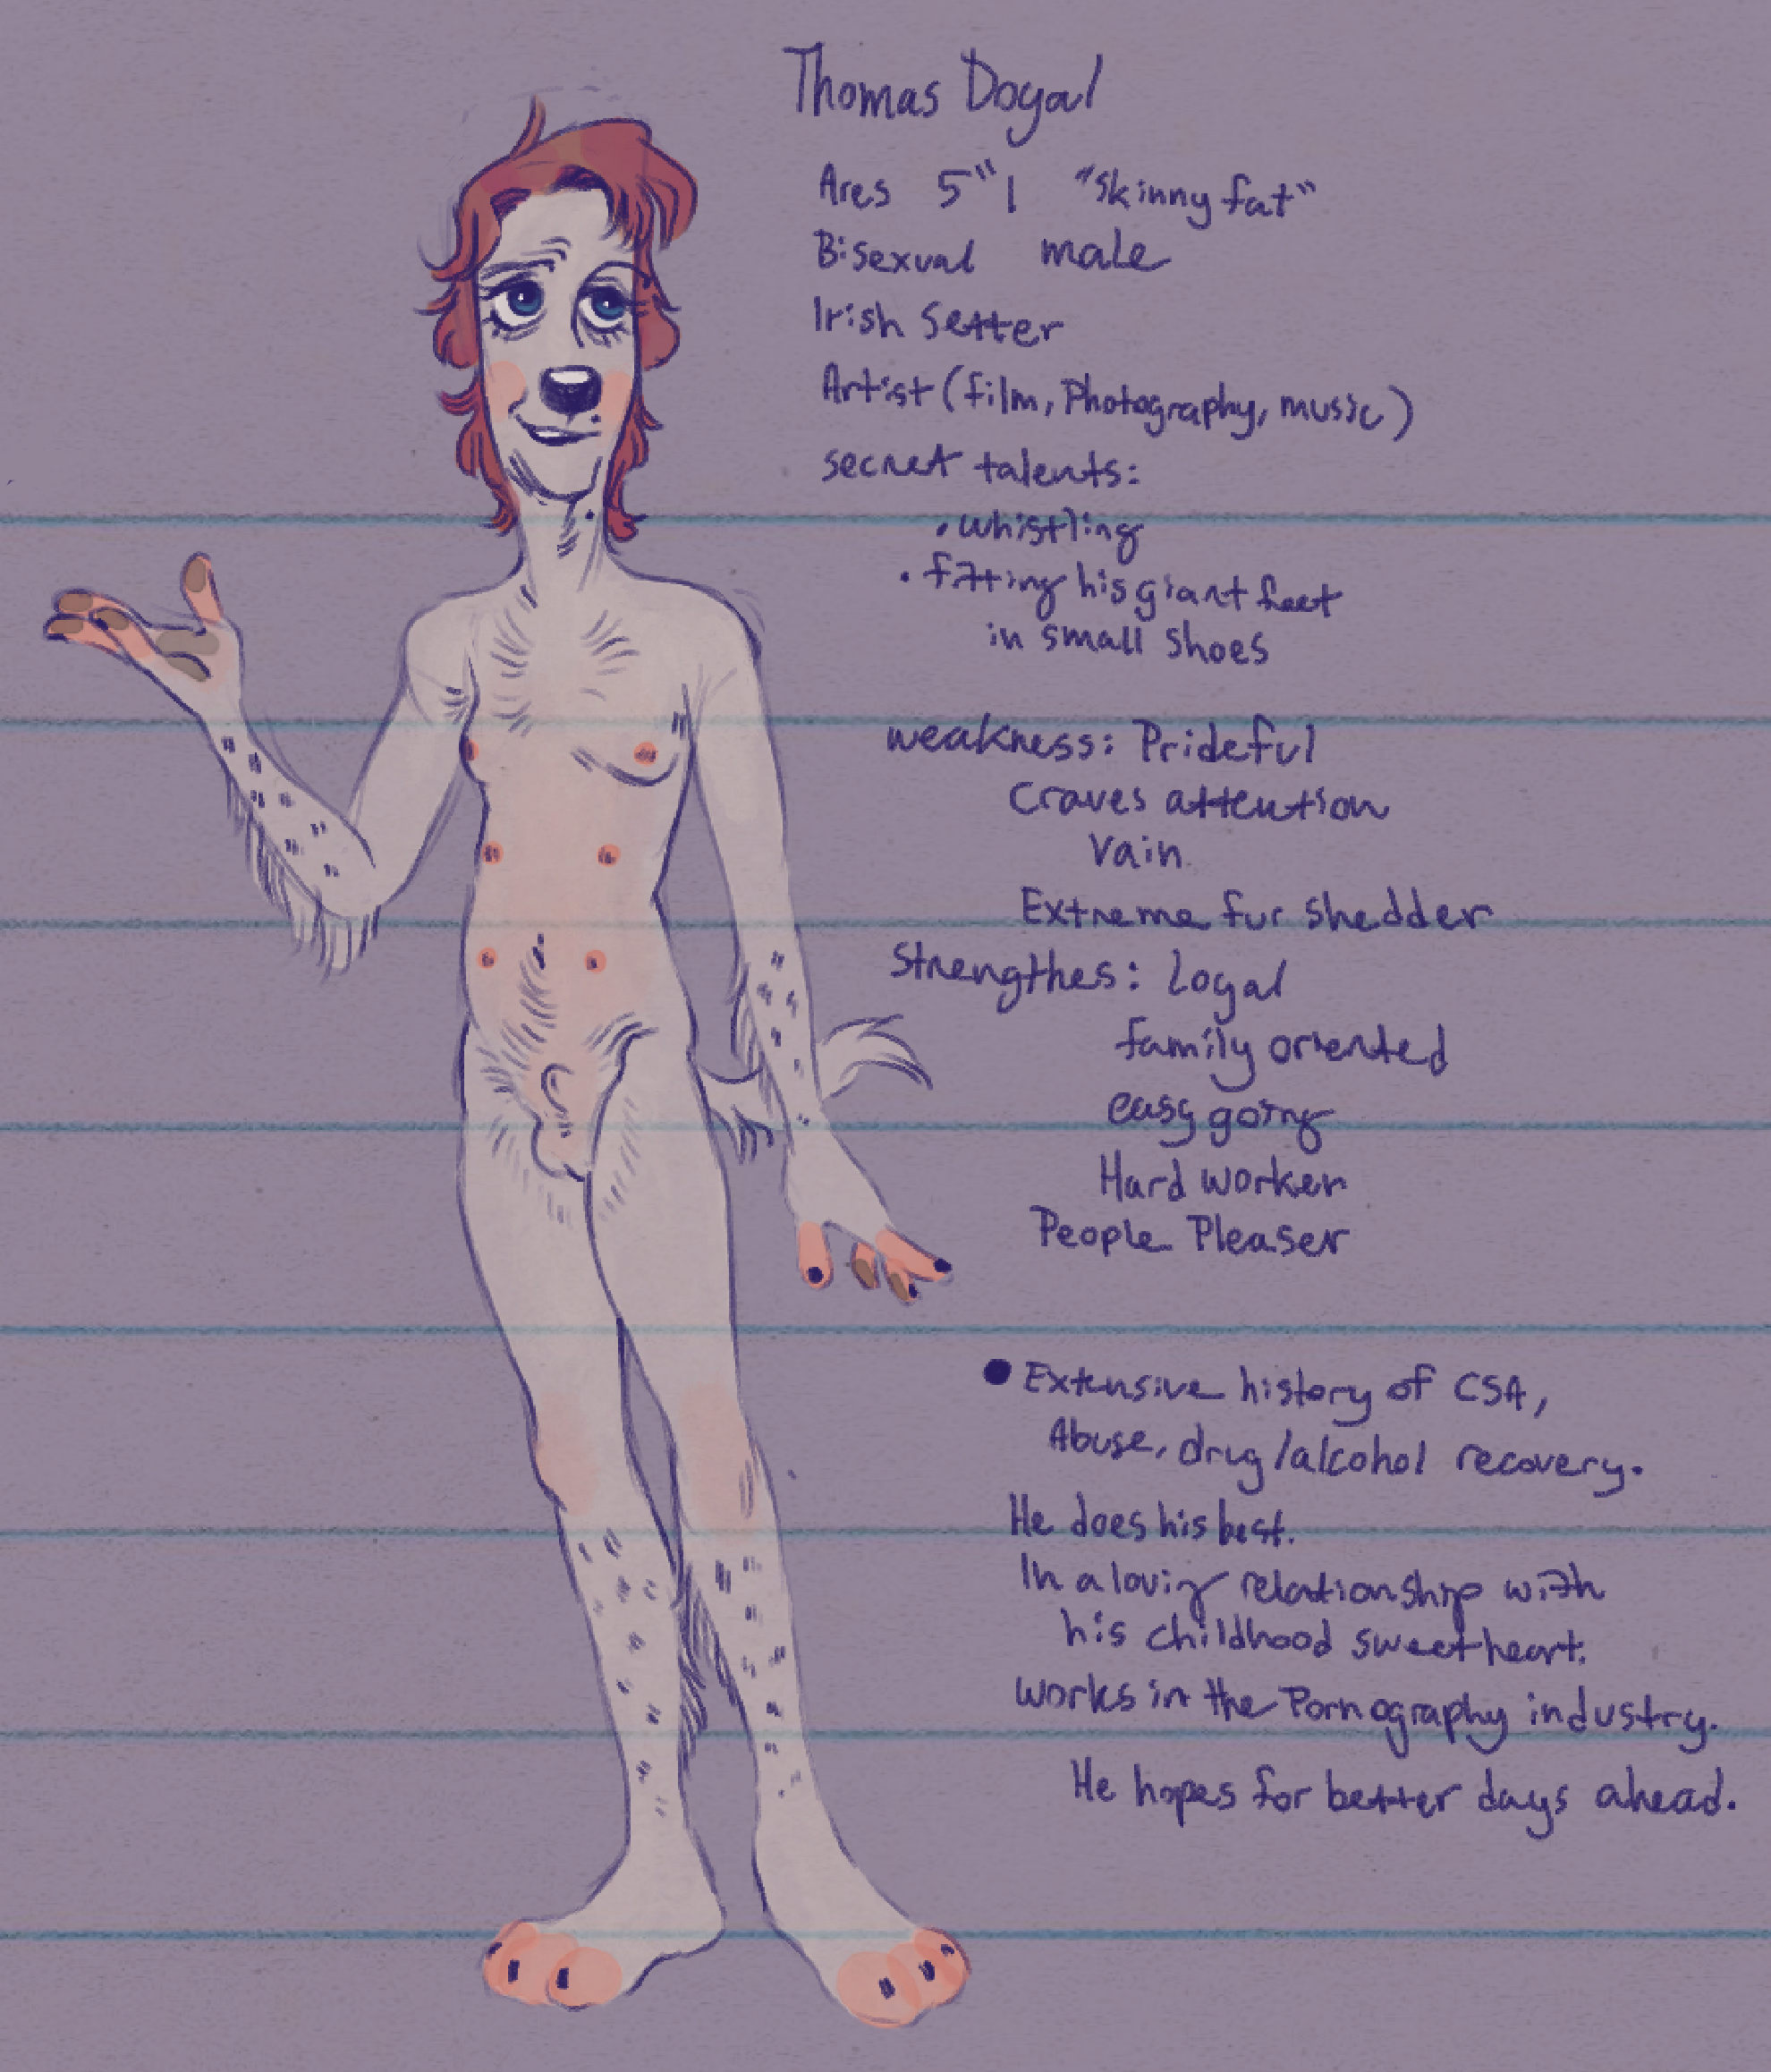 Thomas Dogal
Ares 5"1 "skinny fat"
Bisexual male
Irish Setter
Artist (film, Photography, music)
secret talents:
• whistling
• fitting his giant feet
in small shoes
weakness: Prideful
Craves attention
Vain
Extreme fur shedder
Strengthes: Loyal
family oriented
easy going
Hard worker
People Pleaser
• Extensive history of CSA,
Abuse, drug/alcohol recovery.
He does his best.
In a loving relationship with
his childhood sweetheart.
works in the Pornography industry.
He hopes for better days ahead.